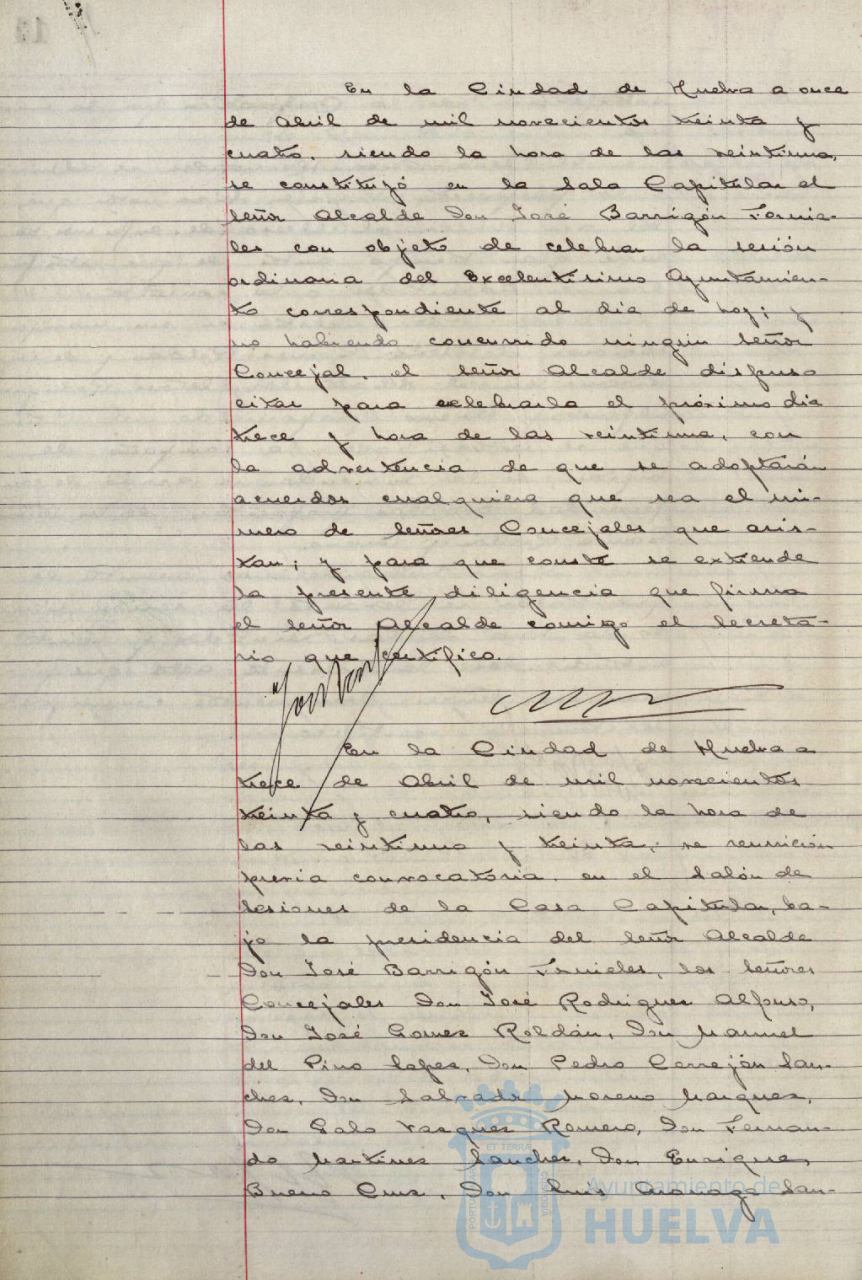 En la Ciudad de Huelva a once
de Abril de mil novecientos treinta y
cuatro, siendo la hora de las veintiuna,
se constituyó en la Sala Capitular el
señor Alcalde Don José Barrigón Fornie-
les con objeto de celebrar la sesión
ordinaria del Excelentísimo Ayuntamien-
to correspondiente al día de hoy; y
no habiendo concurrido ningún señor
Concejal, el señor Alcalde dispuso
citar para celebrarla el próximo día
trece y hora de las veintiuna, con
la advertencia de que se adoptarán
acuerdos cualquiera que sea el nú-
mero de señores Concejales que asis-
tan; y para que conste se extiende
la presente diligencia que firma
el señor Alcalde conmigo el Secreta-
rio que certifico.
En la Ciudad de Huelva a
trece de Abril de mil novecientos
treinta y cuatro, siendo la hora de
las veintiuna y treinta, se reunieron
previa convocatoria, en el Salón de
Sesiones de la Casa Capitular, ba-
jo la presidencia del señor Alcalde
Don José Barrigón Fornieles, los señores
Concejales Don José Rodriguez Alfonso,
Don José Gomez Roldán, Don Manuel
del Pino Lopez, Don Pedro Cerrejón San-
chez, Don Salvador Moreno Marquez,
Don Galo Vazquez Romero, Don Fernan-
do Martinez Sanchez, Don Enrique
Bueno Cruz, Don Luis San-
Ayuntamiento de
HUELVA